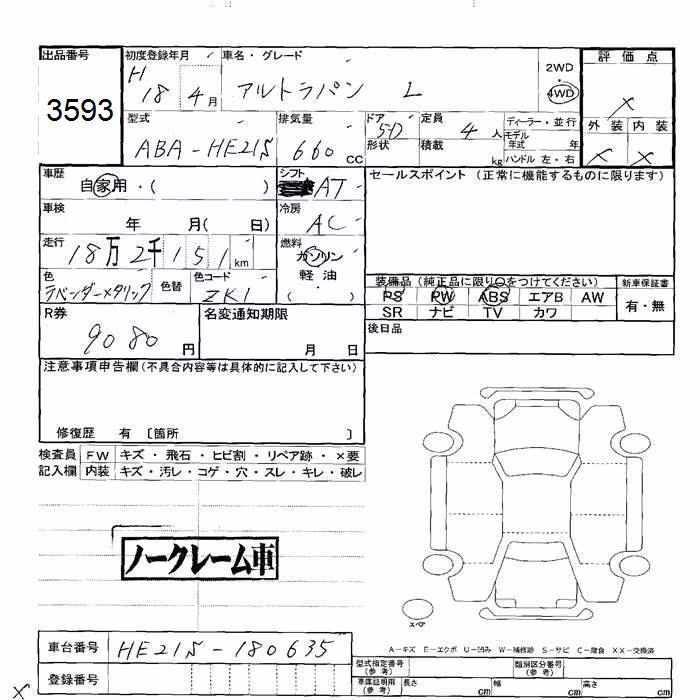 出品番号 初度登録年月 車名・グレード 2WD・4WD 評価点
3593 H 18 4月 アルトラパン L X
型式 排気量 ドア形状 定員 積載 ディーラー・並行 外装 内装
ABA-HE21S 660cc 5D 4人 kg モデル年式 年 ハンドル 左・右 X X
車歴 自家用・( ) シフト AT セールスポイント(正常に機能するものに限ります)
車検 年 月( 日) 冷房 AC
走行 18万2千151km 燃料 ガソリン・軽油・( )
色 ラベンダーメタリック 色替 色コード ZK1
装備品(純正品に限り○をつけてください) 新車保証書
PS PW ABS エアB AW 有・無
SR ナビ TV カワ
R券 9080円 名変通知期限 月 日 後日品
注意事項申告欄(不具合内容等は具体的に記入して下さい)
修復歴 有 〔箇所 〕
検査員 FW キズ・飛石・ヒビ割・リペア跡・×要
記入欄 内装 キズ・汚レ・コゲ・穴・スレ・キレ・破レ
ノークレーム車
スペア
A-キズ E-エクボ U-凹み W-補修跡 S-サビ C-腐食 XX-交換済
車台番号 HE21S-180635
登録番号
型式指定番号(参考) 類別区分番号(参考)
車庫証明用(参考) 長さ cm 幅 cm 高さ cm
X